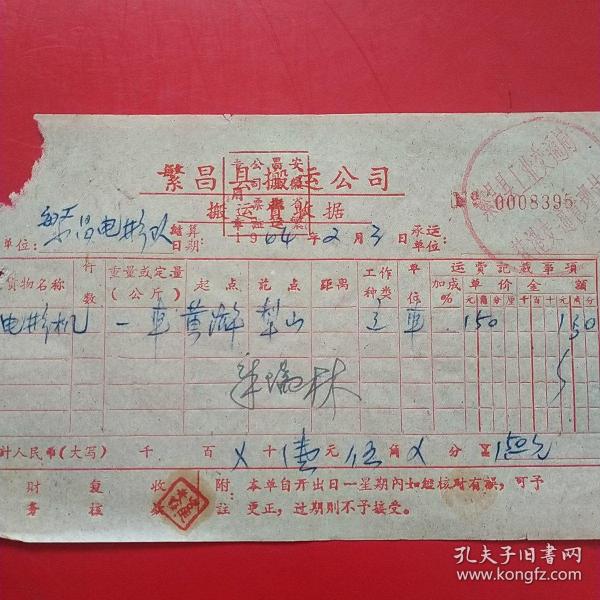 繁昌县搬运公司
搬运费收据
№ 0008395
单位：繁昌电影队 结算日期：1964年2月3日 承运单位：
货物名称 件数 重量或定量（公斤） 起点 讫点 距离 工作种类 单位 运费记载事项
加成% 单价 金额
元 角 分 厘 千 百 十 元 角 分
电影机 一车 黄浒 犁山 车 150 150
计人民币（大写） 千 百 X 十 壹 元 伍 角 X 分 1.50元
财务 复核 收款
附注：本单自开出日一星期内如经核对有误，可予
更正，过期则不予接受。
孔夫子旧书网
www.kongfz.com